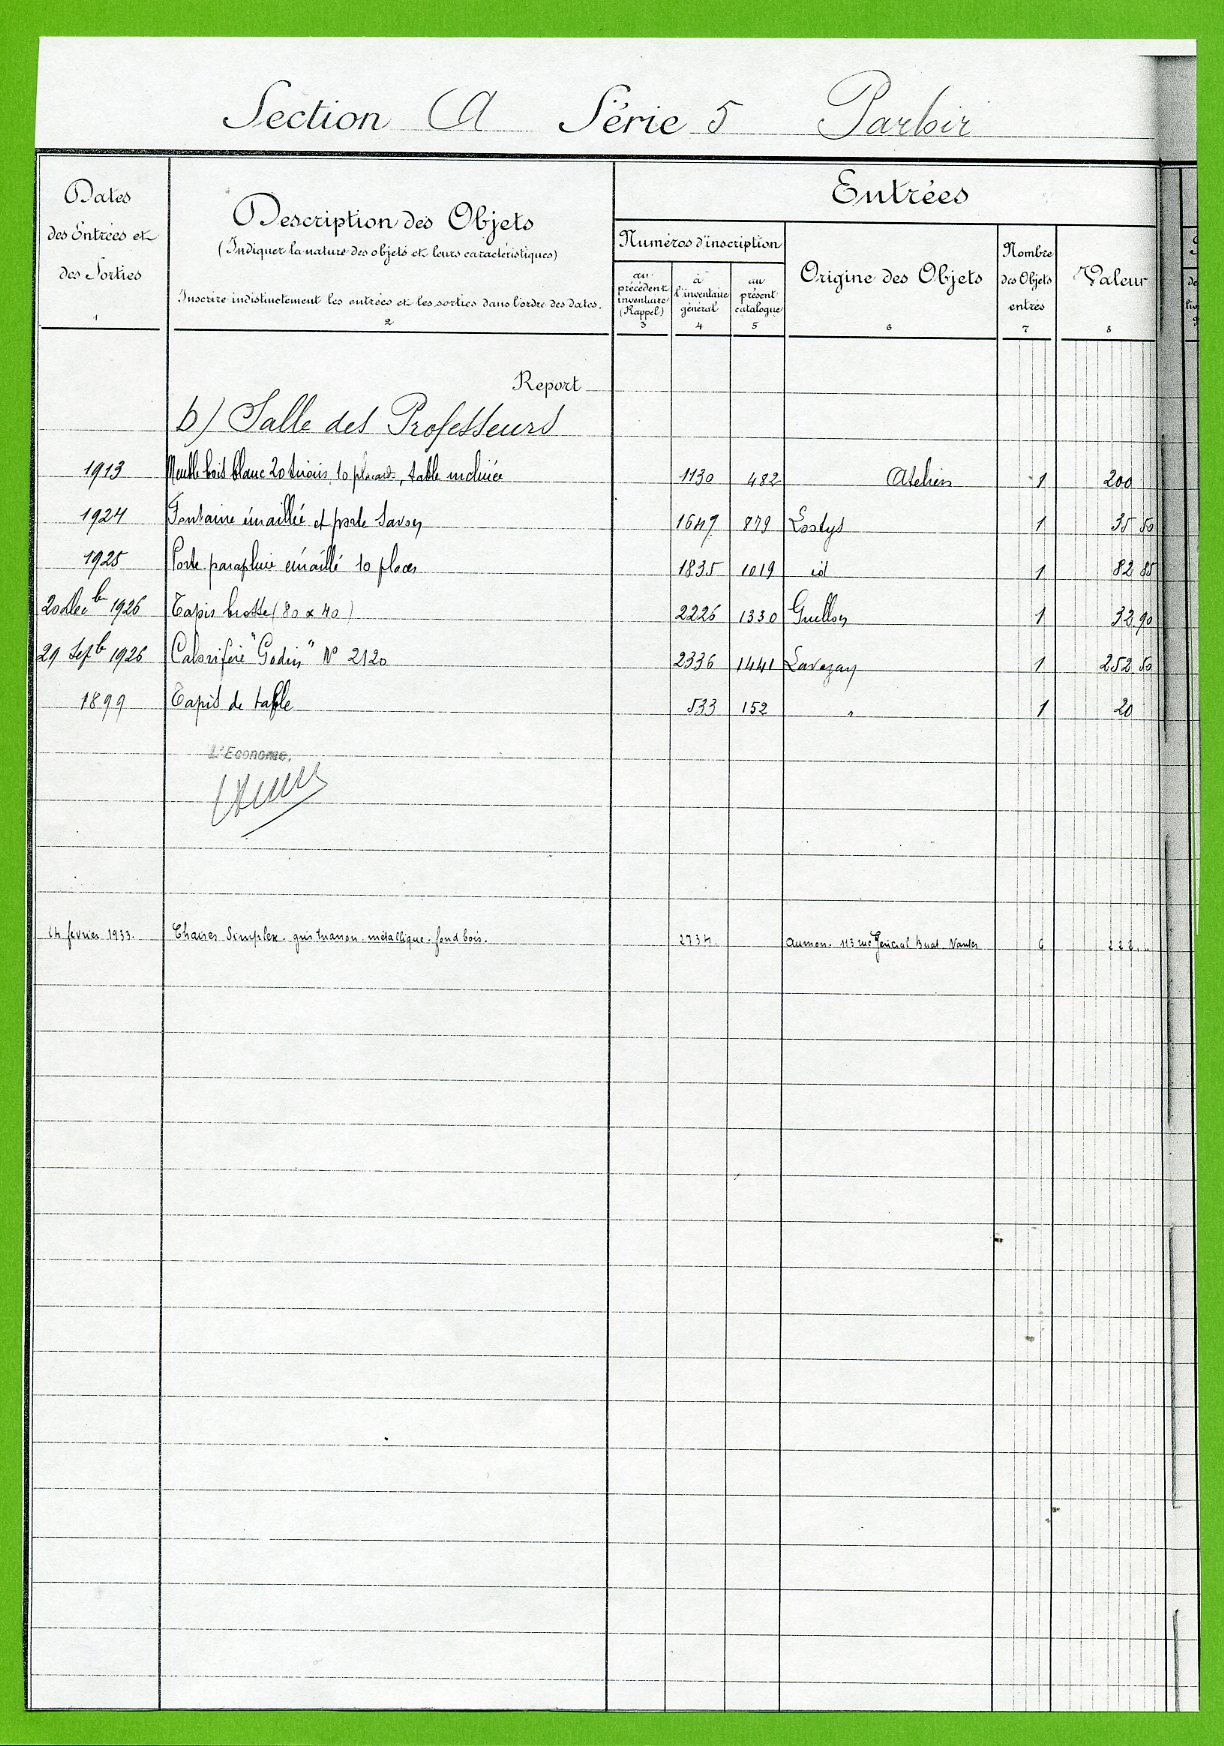 Section A Série 5 Parloir
Dates des Entrées et des Sorties
1
Description des Objets
(Indiquer la nature des objets et leurs caractéristiques)
Inscrire indistinctement les entrées et les sorties dans l'ordre des dates.
2
Entrées
Numéros d'inscription
au précédent inventaire (Rappel)
3
à l'inventaire général
4
au présent catalogue
5
Origine des Objets
6
Nombre des Objets entrés
7
Valeur
8
Report
b) Salle des Professeurs
1913 Meuble bois blanc 20 tiroirs, 10 placards, table inclinée 1130 482 Ateliers 1 200
1924 Fontaine émaillée et porte savon 1649 879 Lostys 1 35 50
1925 Porte parapluie émaillé 10 places 1835 1019 id 1 82 85
20 Dec b 1926 Tapis brosse (80 x 40) 2226 1330 Guellon 1 32 90
29 Sept b 1926 Calorifère "Godin" N° 2120 2336 1441 1 252 50
1899 Tapis de table 533 152 " 1 20
L'Econome,
14 février 1933. Chaises Simplex gris trianon métallique. fond bois. 2734 Aumon. 113 rue Général Buat Nantes 6 222